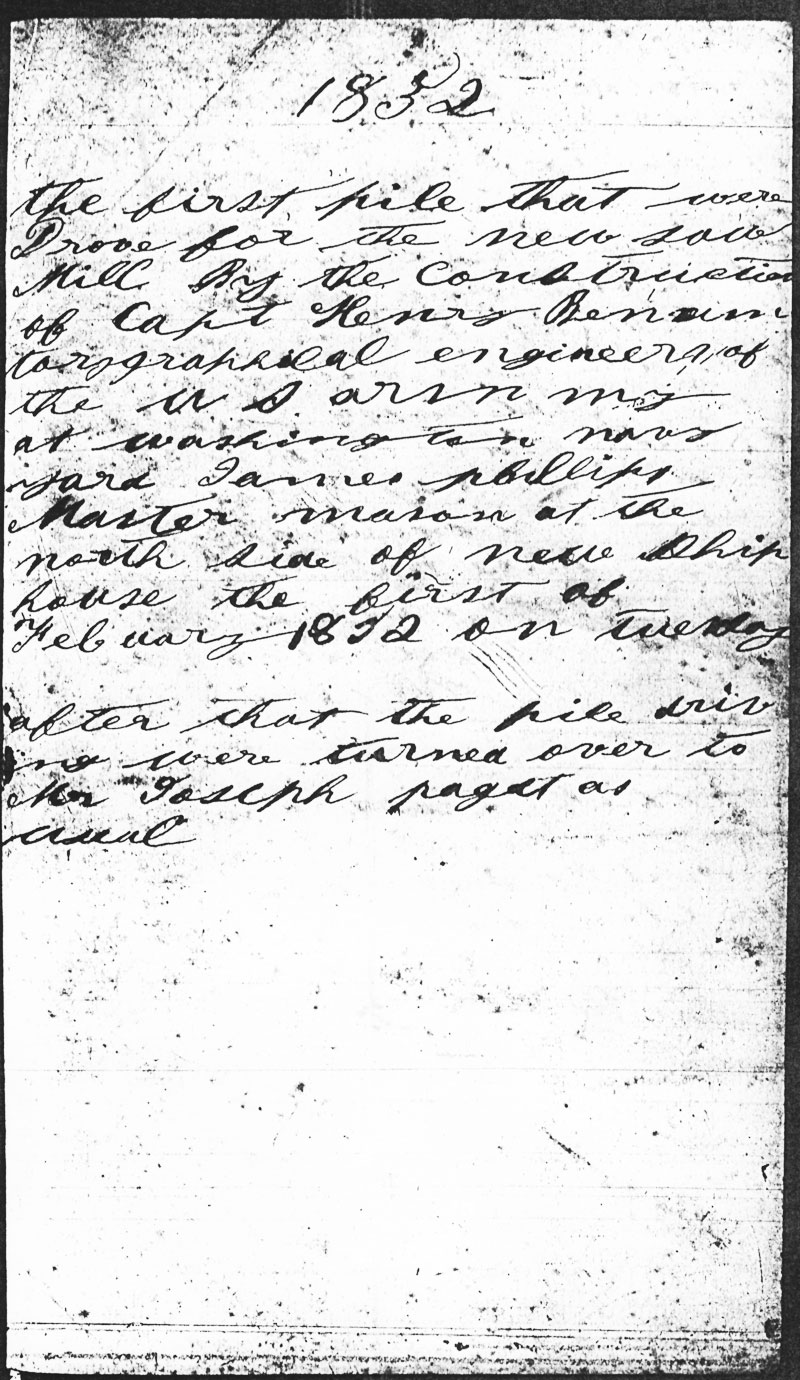 1852
the first pile that were
Drove for the new saw
Mill By the Construction
of Capt Henry Benam
torpgraphical engineers of
the U S arm my
at washington navy
yard James phillips
Master mason at the
north side of new Ship
house the first of
Febuary 1852 on tuesday
after that the pile driv
ing were turned over to
Mr Joseph padgett as
usual